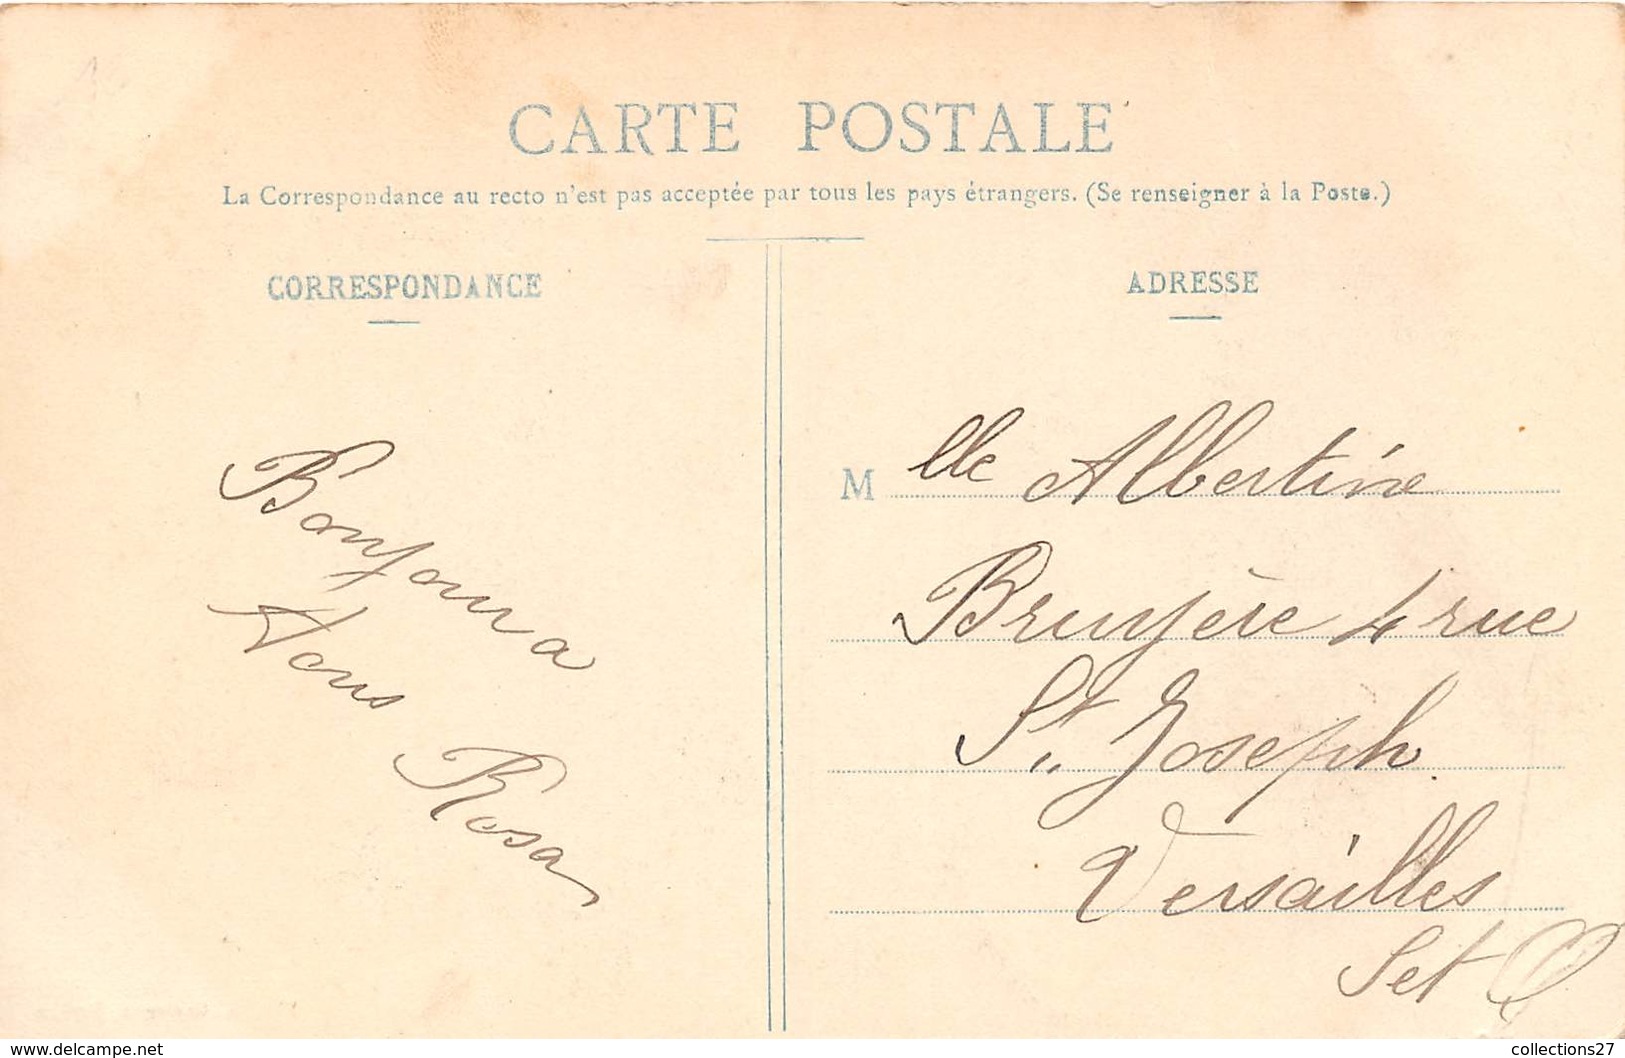 CARTE POSTALE
La Correspondance au recto n'est pas acceptée par tous les pays étrangers. (Se renseigner à la Poste.)
CORRESPONDANCE
Bonjour a
Vous
Rosa
ADRESSE
M lle Albertine
Bruyère 4 rue
St. Joseph
Versailles
S et O
www.delcampe.net
collections27